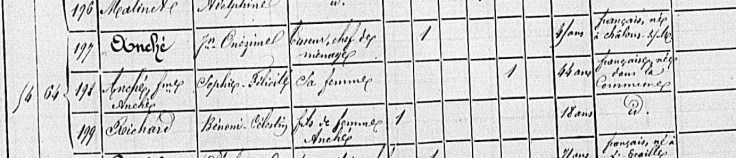 196 Malinet Delphine id.
197 Anché Jn Onézime Tisseur, chef de ménage 1 41 ans français, né à Châlons-s/-
54 64 198 Anché, fme Anché Sophie-Félicité Sa femme 1 44 ans française, née dans la Commune
199 Richard Bénoni-Célestin fils de femme Anché 1 18 ans id.
1 71 ans français, né à